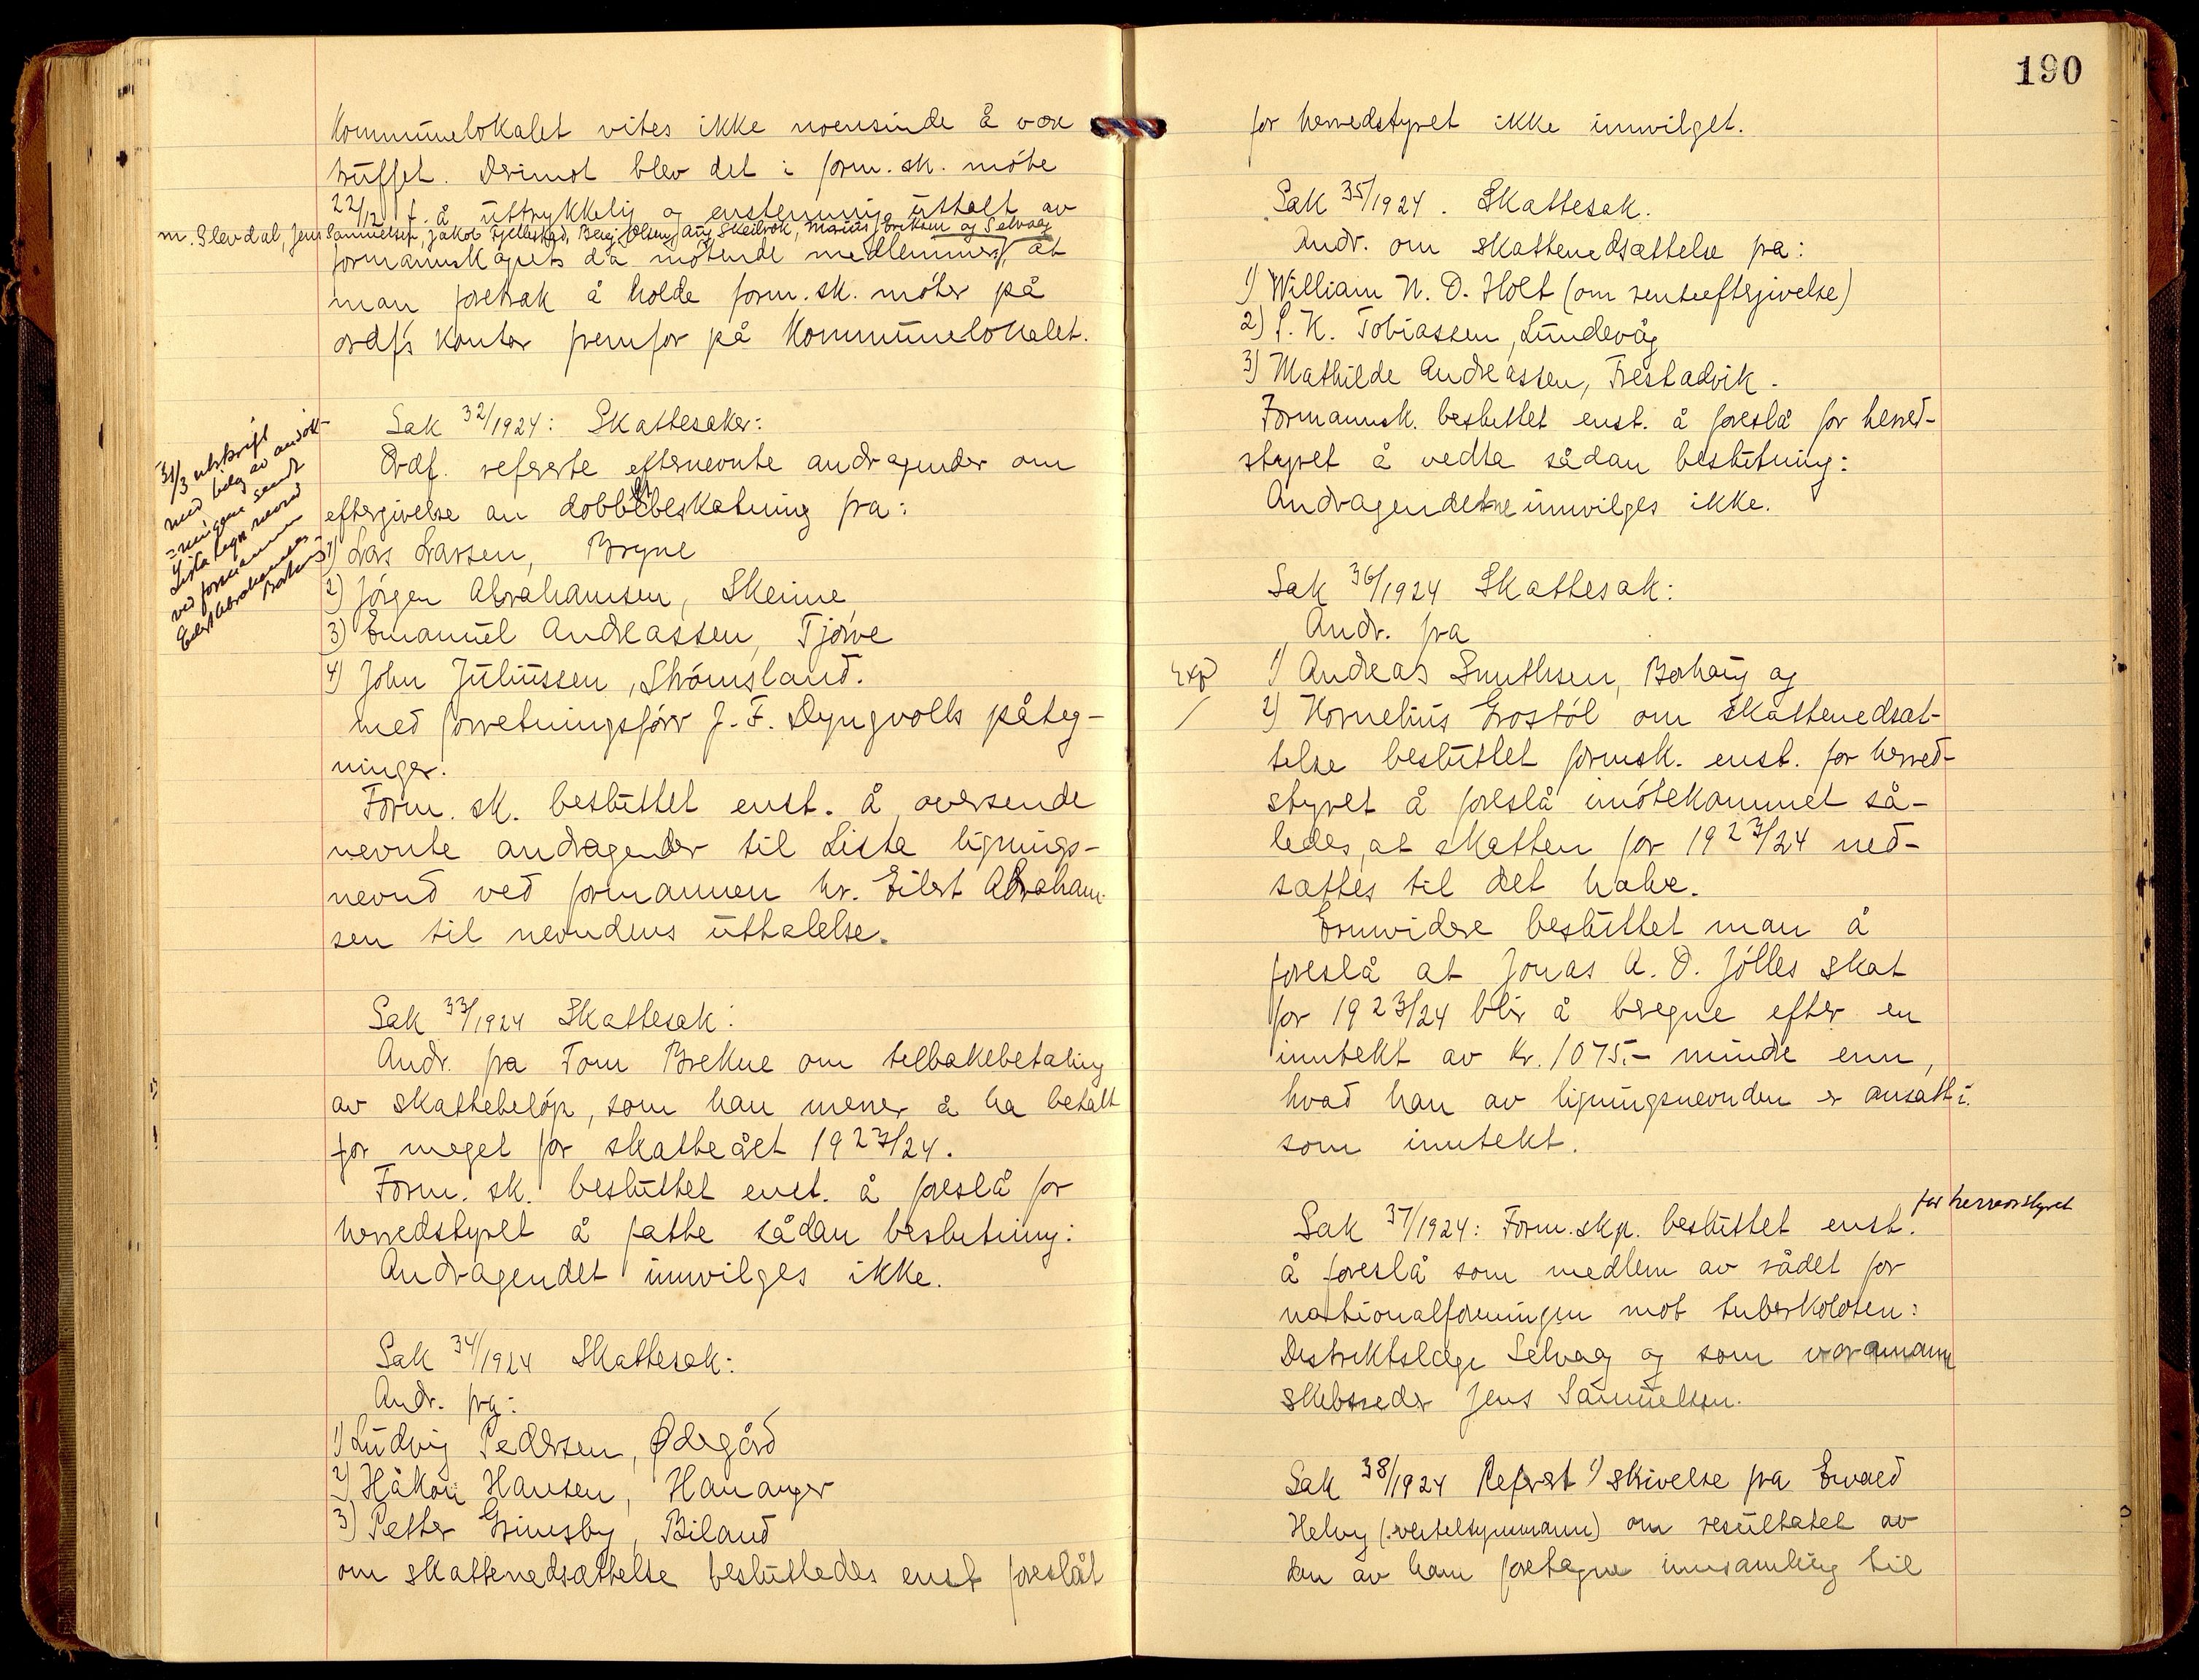 Kommunelokalet vites ikke noensinde å være
truffet. Derimot blev det i form.sk. møte
22/12 f. å uttrykkelig og enstemmig uttalt av
m. Elevdal, Jens Samuelsen, Jakob Fjellestad, Benj. Olsen, Aug Skeibrok, Marius Eriksen og Selvaag
formannskapets da møtende medlemmer, at
man foretrak å holde form.sk. møter på
ordf's kontor fremfor på Kommunelokalet.
Sak 32/1924: Skattesaker:
Ordf. refererte efternevnte andragender om
eftergivelse an dobbeltbeskatning fra:
1) Lars Larsen, Bryne
2) Jørgen Abrahamsen, Skeime
3) Emanuel Andreassen, Tjørve
4) John Juliussen, Strømsland.
med forretningsfører J. F. Dyngvolls påteg-
ninger.
Form. sk. besluttet enst. å oversende
nevnte andragender til Lista lignings-
nevnd ved formannen hr. Eilert Abraham-
sen til nevndens uttalelse.
31/3 utskrift
med bilag av ansøk-
=ningene sendt
Lista lign nevnd
ved formannen
Eilert Abrahamsen
Borhaug
Sak 33/1924 Skattesak:
Andr. fra Tom Brekne om tilbakebetaling
av skattebeløp, som han mener å ha betalt
for meget for skatteåret 1923/24.
Form. sk. besluttet enst. å foreslå for
herredstyret å fatte sådan beslutning:
Andragendet innvilges ikke.
Sak 34/1924 Skattesak:
Andr. fra:
1) Ludvig Pedersen, Ødegård
2) Håkon Hansen, Hananger
3) Petter Grimsby, Biland
om skattenedsættelse besluttedes enst foreslåt
190
for herredstyret ikke innvilget.
Sak 35/1924. Skattesak.
Andr. om skattenedsættelse fra:
1) William N. D. Holt (om renteeftergivelse)
2) P. K. Tobiassen, Lundevåg
3) Mathilde Andreassen, Frestadvik.
Formannsk. besluttet enst. å foreslå for herred-
styret å vedta sådan beslutning:
Andragendetne innvilges ikke.
Sak 36/1924 Skattesak:
Andr. fra
Exp 1) Andreas Knuthsen, Borhaug og
/ 2) Kornelius Grostøl om skattenedsæt-
telse besluttet formsk. enst. for herred-
styret å foreslå imøtekommet så-
ledes, at skatten for 1923/24 ned-
sættes til det halve.
Ennvidere besluttet man å
foreslå at Jonas A. D. Jølles skat
for 1923/24 blir å beregne efter en
inntekt av kr. 1075.- mindre enn,
hvad han av ligningsnevnden er ansatt i
som inntekt.
Sak 37/1924: Form.skp. besluttet enst. for herredstyret
å foreslå som medlem av rådet for
nationalforeningen mot tuberkolosen:
Distriktslæge Selvaag og som varamann
skibsreder Jens Samuelsen.
Sak 38/1924 Referert 1) skrivelse fra Ewald
Helvig () om resultatet av
den av ham foretagne innsamling til